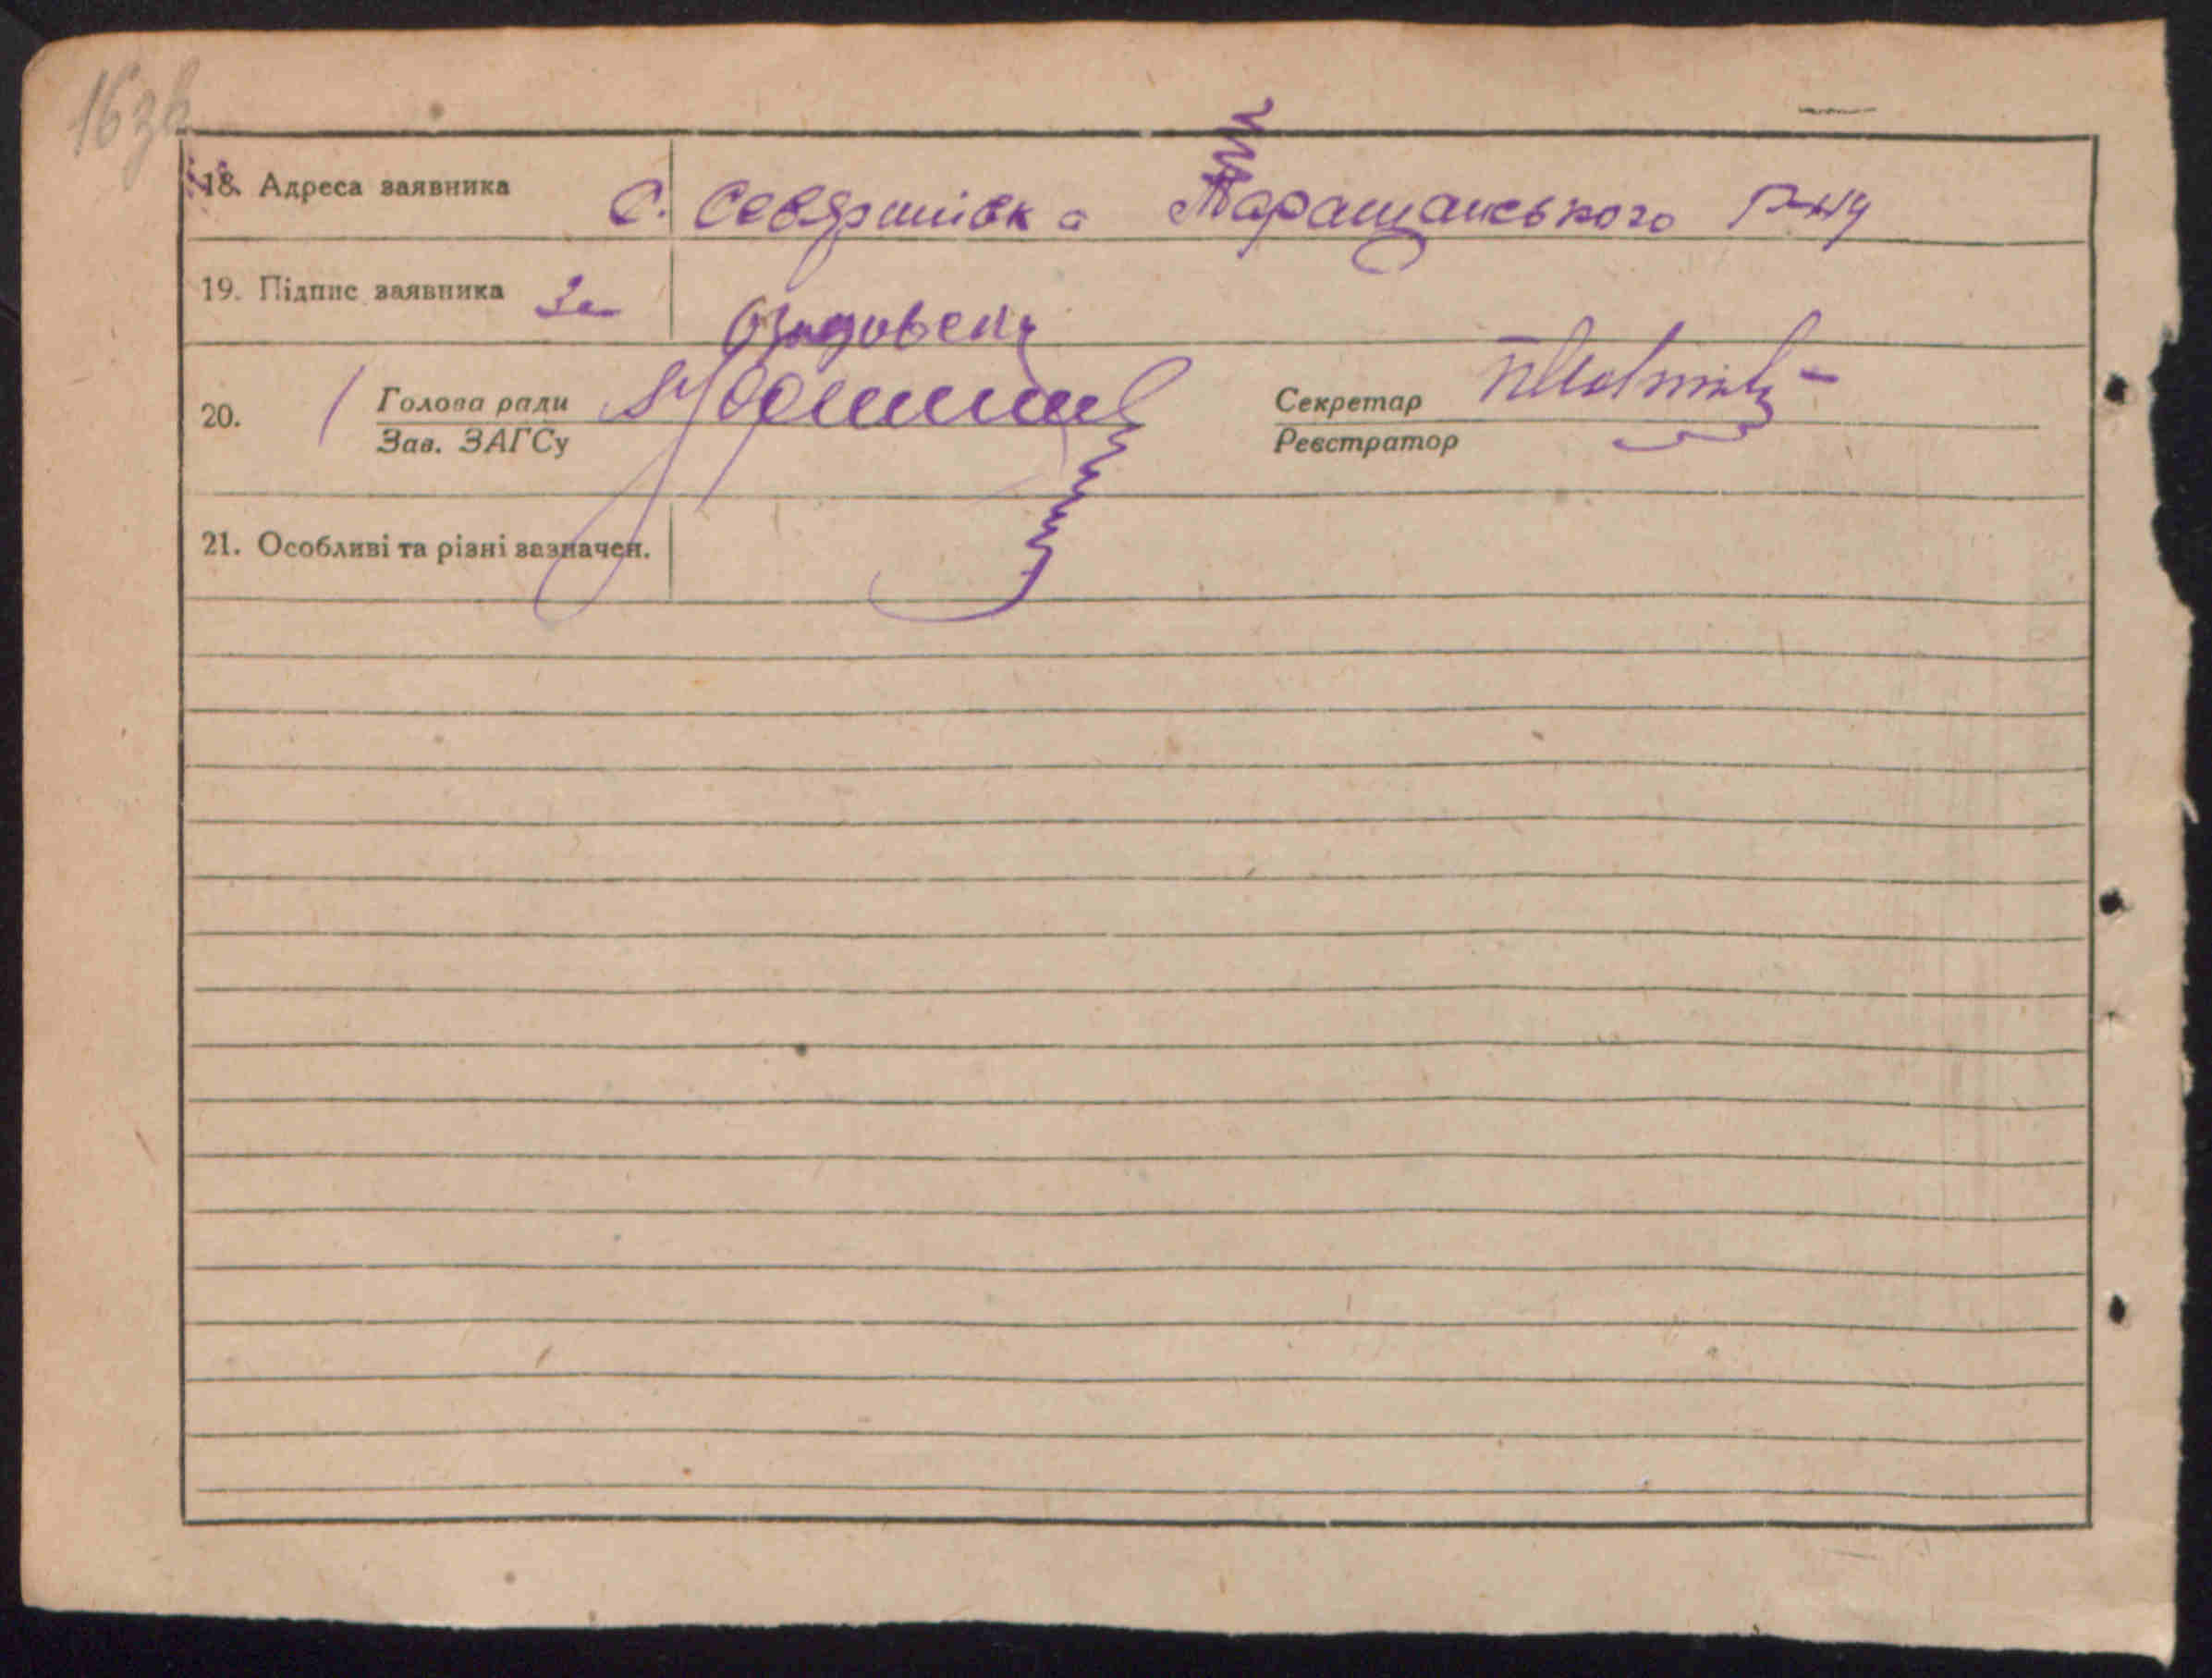 16 зв
18. Адреса заявника С. Севяринівка Таращанського р-ну
19. Підпис заявника За
20. Голова ради Секретар
Зав. ЗАГСу Реєстратор
21. Особливі та різні зазначен.